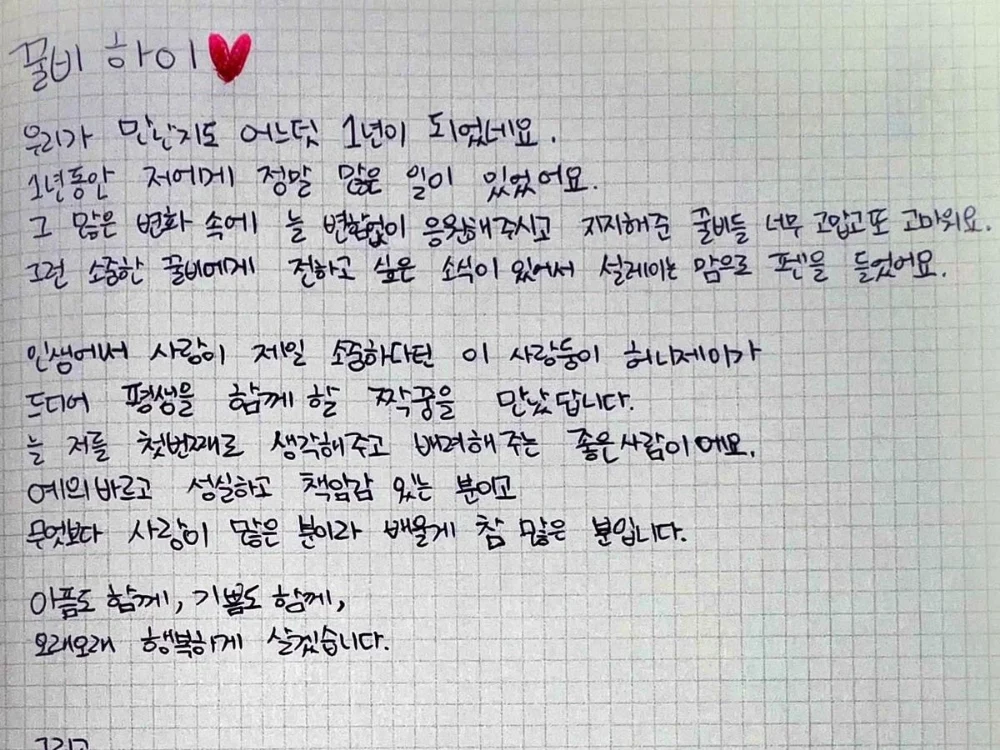 꿀비 하이
우리가 만난지도 어느덧 1년이 되었네요.
1년동안 저에게 정말 많은 일이 있었어요.
그 많은 변화 속에 늘 변함없이 응원해주시고 지지해준 꿀비들 너무 고맙고 또 고마워요.
그런 소중한 꿀비에게 전하고 싶은 소식이 있어서 설레이는 맘으로 펜을 들었어요.
인생에서 사랑이 제일 소중하다던 이 사랑둥이 허니제이가
드디어 평생을 함께 할 짝꿍을 만났답니다.
늘 저를 첫번째로 생각해주고 배려해 주는 좋은사람이에요.
예의바르고 성실하고 책임감 있는 분이고
무엇보다 사랑이 많은 분이라 배울게 참 많은 분입니다.
아픔도 함께, 기쁨도 함께,
오래오래 행복하게 살겠습니다.
그리고